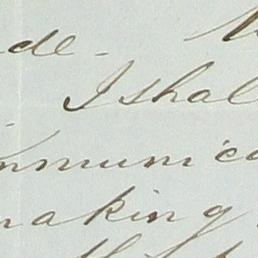 de -
I shal
mmunica
making